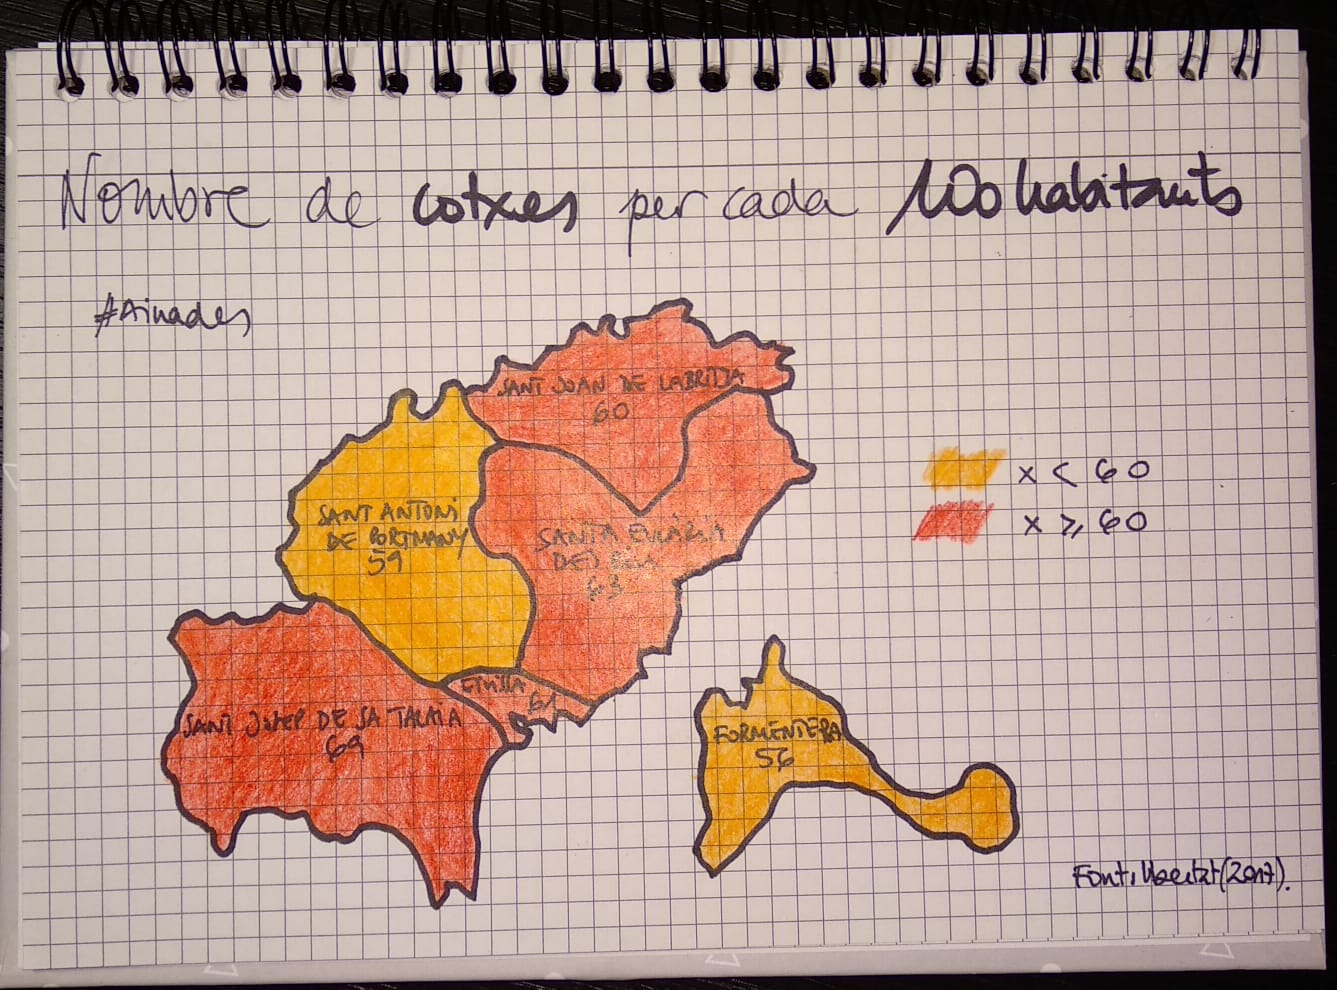 Nombre de cotxes per cada 100 habitants
#Ainades
SANT JOAN DE LABRITJA
60
SANT ANTONI
DE PORTMANY
59
SANTA EULÀRIA
DES RIU
63
EIVISSA
61
SANT JOSEP DE SA TALAIA
69
FORMENTERA
56
x < 60
x ≥ 60
Font: Ibestat (2017).